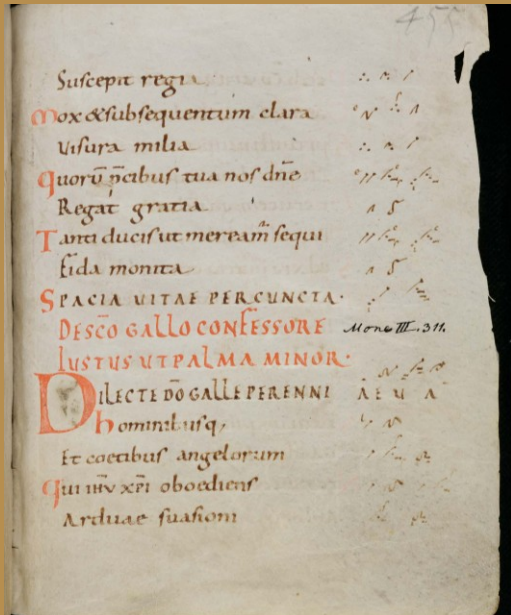 455
Suscepit regia
Mox & subsequentum clara
Visura milia
Quorū p̄cibus tua nos dn̄e
Regat gratia
Tanti ducis ut meream̄ sequi
Fida monita
SPACIA VITAE PER CUNCTA.
DE SC̄O GALLO CONFESSORE
Mone III. 311.
IUSTUS UT PALMA MINOR.
DILECTE DŌ GALLE PERENNI
A E U A
hominibusq;
Et coetibus angelorum
Qui ihū xp̄i oboediens
Arduae suasioni